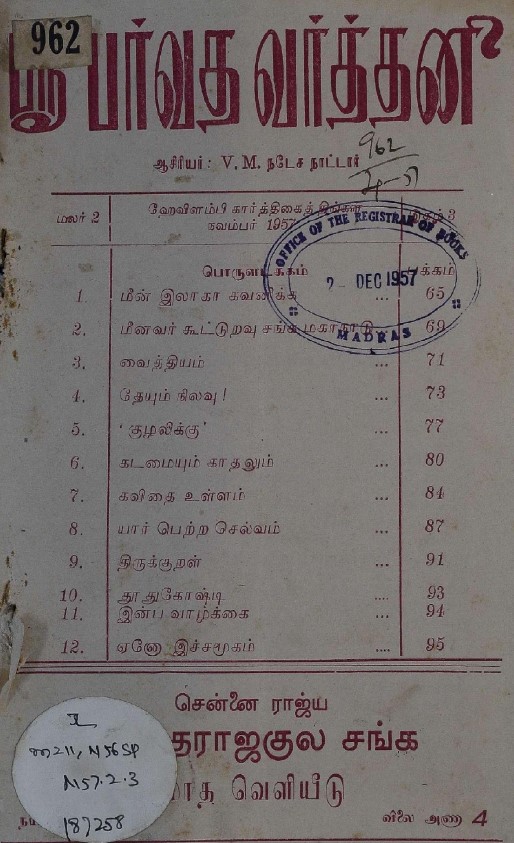 962
ஸ்ரீ பர்வத வர்த்தனி
ஆசிரியர்: V. M. நடேச நாட்டார்
962
மலர் 2
ஹேவிளம்பி கார்த்திகைத் திங்கள்
நவம்பர் 1957
3
OFFICE OF THE REGISTRAR OF BOOKS
2 - DEC 1957
MADRAS
பொருளடக்கம் பக்கம்
1. மீன் இலாகா கவனிக்க ... 65
2. மீனவர் கூட்டுறவு சங்க மகாநாடு 69
3. வைத்தியம் ... 71
4. தேயும் நிலவு! ... 73
5. ‘குழலிக்கு’ ... 77
6. கடமையும் காதலும் ... 80
7. கவிதை உள்ளம் ... 84
8. யார் பெற்ற செல்வம் ... 87
9. திருக்குறள் ... 91
10. தூதுகோஷ்டி .... 93
11. இன்ப வாழ்க்கை ... 94
12. ஏனோ இச்சமூகம் .... 95
சென்னை ராஜ்ய
தராஜகுல சங்க
மாத வெளியீடு
விலை அணா 4
M57.2.3
187258